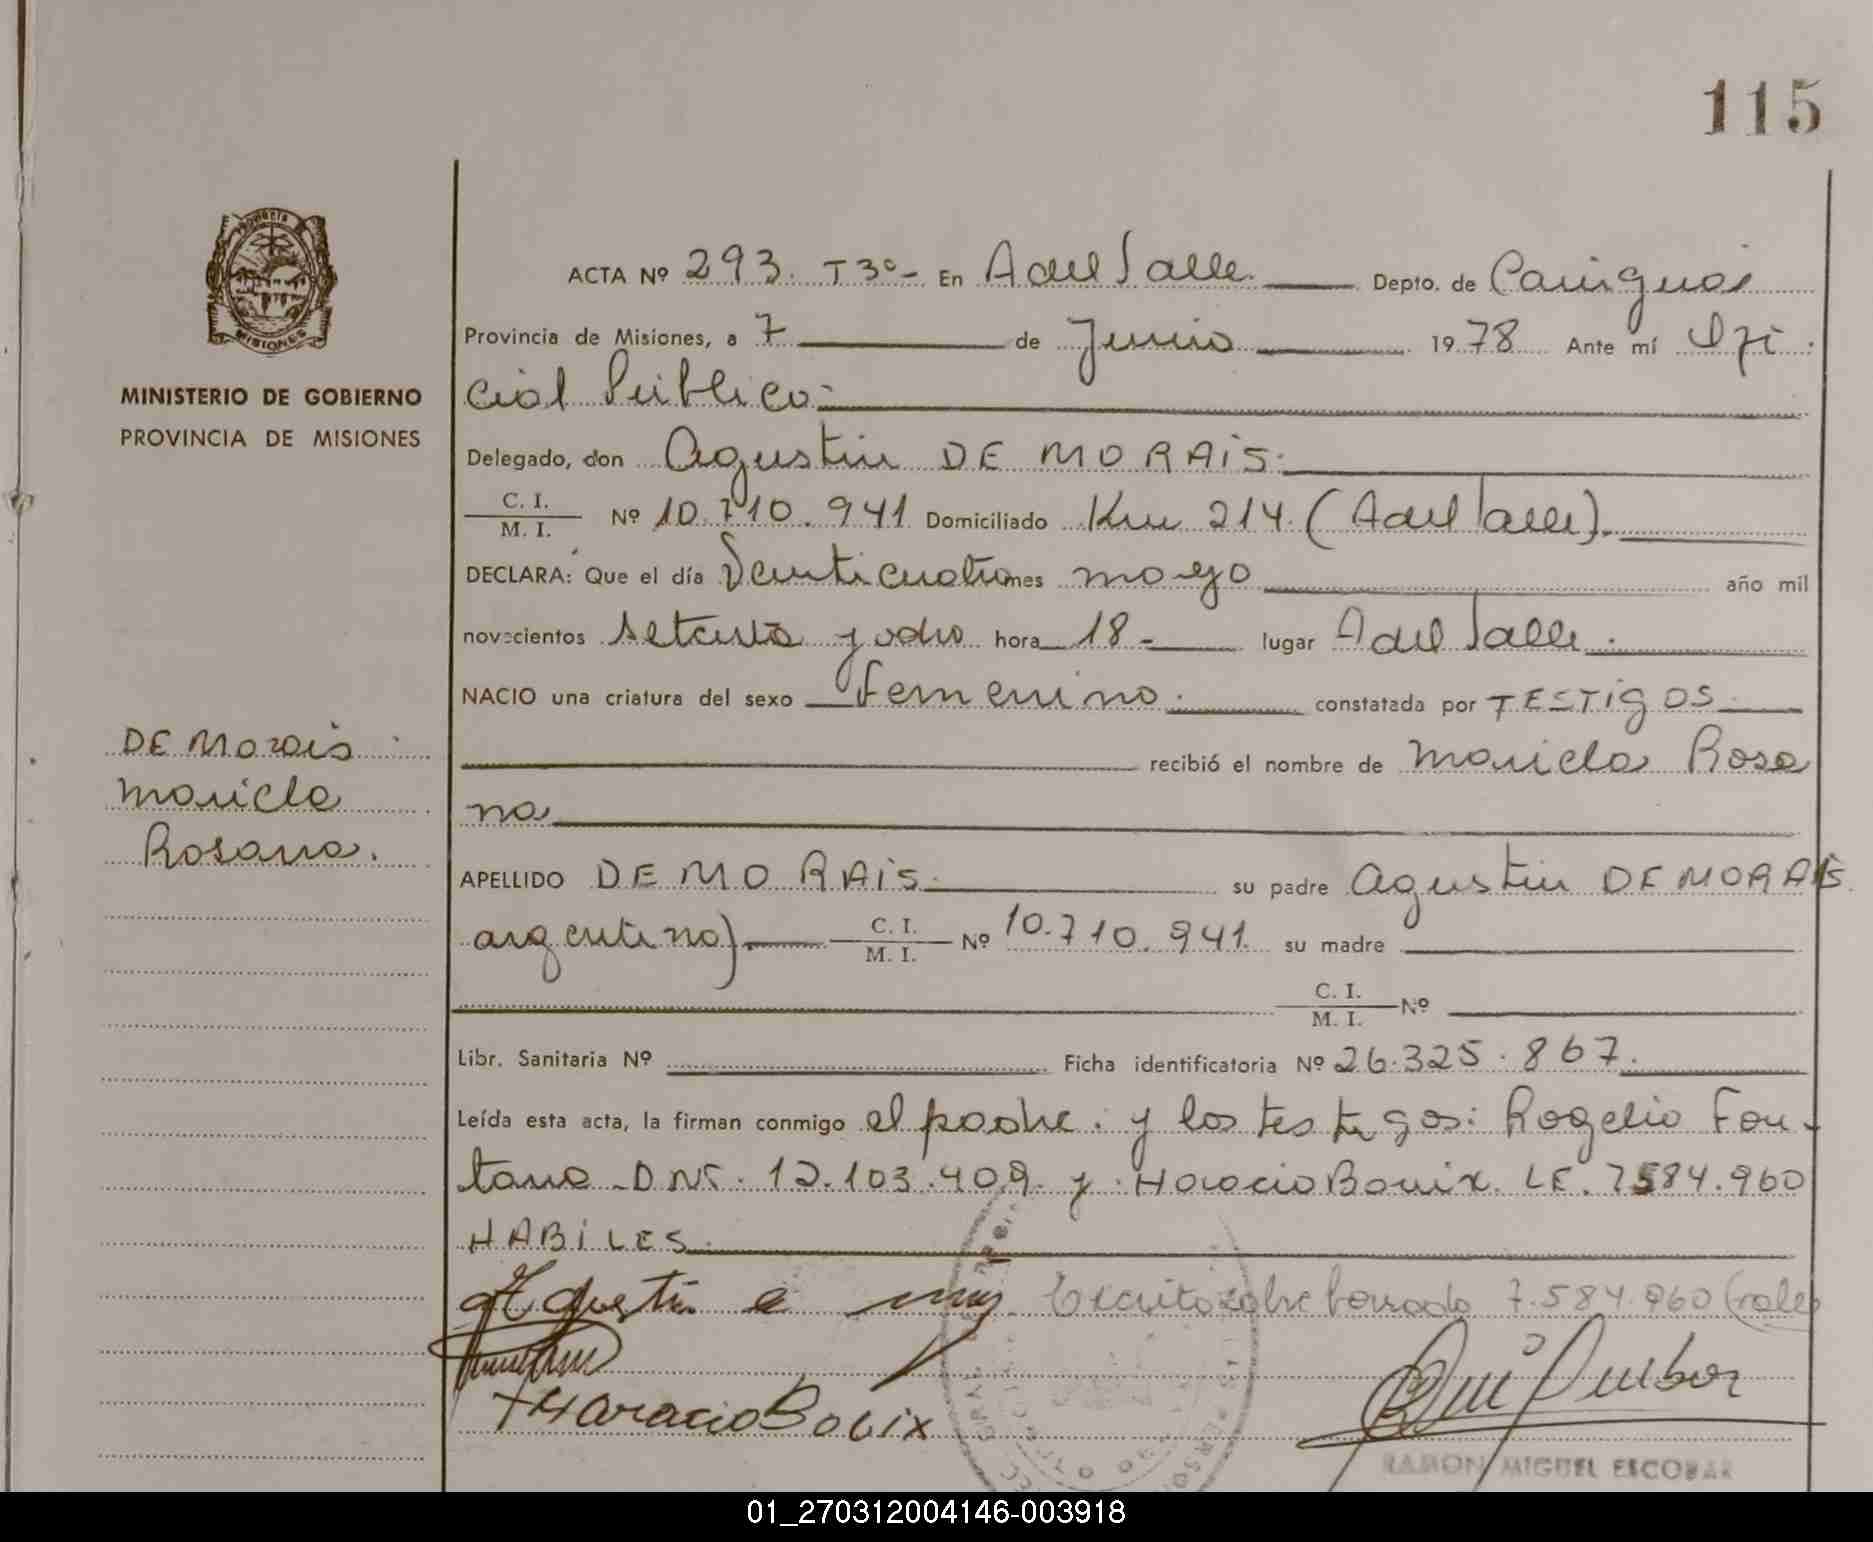 115
ACTA Nº 293. T3º- En A del Valle. Depto. de Cainguás
Provincia de Misiones, a 7 de Junio 1978 Ante mí Ofi
cial Público-
MINISTERIO DE GOBIERNO
PROVINCIA DE MISIONES
Delegado, don Agustin DE MORAIS.
C. I. / M. I. Nº 10.710.941 Domiciliado Km 214 (A del Valle).
DECLARA: Que el día Veinticuatro mes mayo año mil
novecientos setenta y ocho hora 18- lugar A del Valle.
NACIO una criatura del sexo Femenino. constatada por TESTIGOS
recibió el nombre de Mariela Rosa
na
DE Morais
Mariela
Rosana.
APELLIDO DE MORAIS. su padre Agustin DE MORAIS
argentino) C. I. / M. I. Nº 10.710.941. su madre
C. I. / M. I. Nº
Libr. Sanitaria Nº Ficha identificatoria Nº 26.325.867.
Leída esta acta, la firman conmigo el padre. y los testigos: Rogelio Fon-
tana - DNI. 12.103.409. y Horacio Bouix. LE. 7584.960
HABILES.
Agustin de Escrito sobre borrado 7.584.960 (vale)
Horacio Bouix
RAMON MIGUEL ESCOBAR
01_270312004146-003918